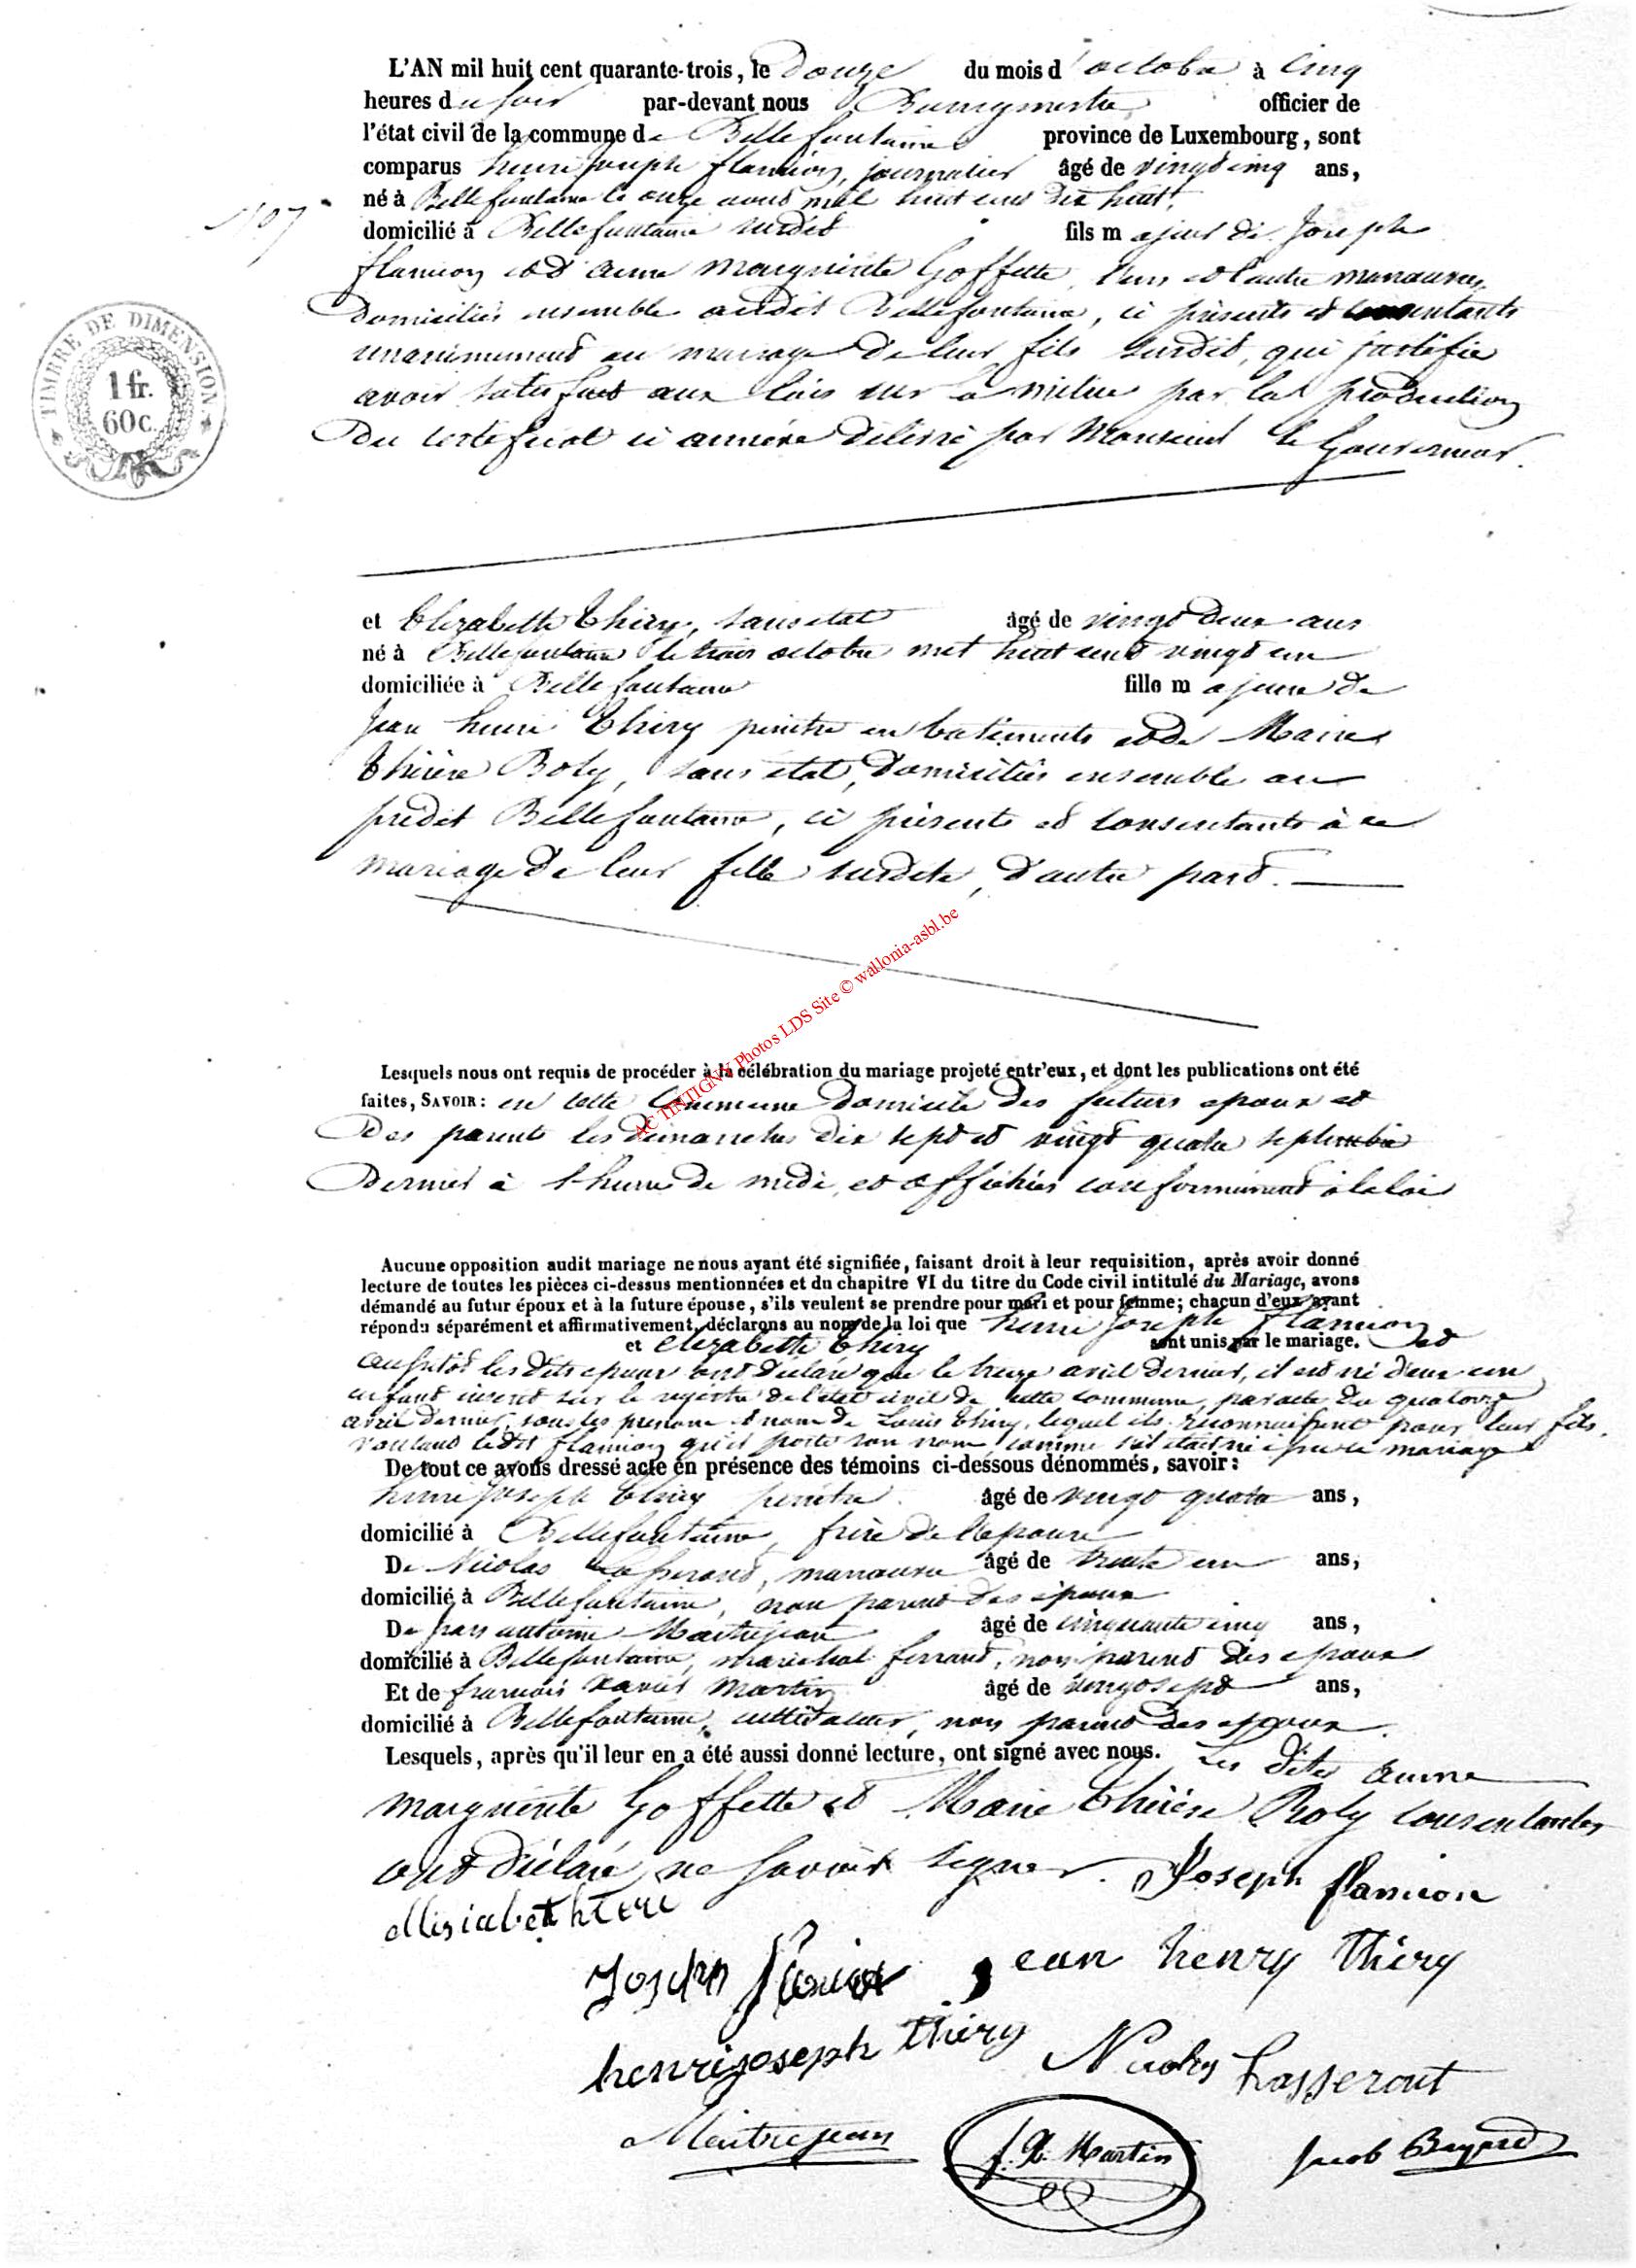 L'AN mil huit cent quarante-trois, le douze du mois d'octobre à cinq
heures du soir par-devant nous Bourgmestre officier de
l'état civil de la commune de Bellefontaine province de Luxembourg, sont
comparus henri Joseph flamion, journalier âgé de vingt cinq ans,
né à Bellefontaine le onze aout mil huit cent dix huit,
domicilié à Bellefontaine susdit fils majeur de Joseph
flamion et d'anne marguerite Goffette, l'un et l'autre manœuvres,
domiciliés ensemble audit Bellefontaine, ci présents et consentants
unanimement au mariage de leur fils susdit, qui justifie
avoir satisfait aux lois sur la milice par la production
du certificat ci annexé délivré par Monsieur le Gouverneur.
TIMBRE DE DIMENSION.
1 fr.
60 c.
et Elizabette Thiry, sans état âgé de vingt deux ans
né à Bellefontaine le trois octobre mil huit cent vingt un
domiciliée à Bellefontaine fille majeure de
Jean henri Thiry peintre en batiments et de Marie
Thérèse Roly, sans état, domiciliés ensemble au
prédit Bellefontaine, ci présents et consentants à ce
mariage de leur fille susdite, d'autre part.
AC TINTIGNY Photos LDS Site © wallonia-asbl.be
Lesquels nous ont requis de procéder à la célébration du mariage projeté entr'eux, et dont les publications ont été
faites, SAVOIR: en cette commune domicile des futurs epoux et
des parents les dimanches dix sept et vingt quatre septembre
dernier à l'heure de midi, et affichées conformément à la loi
Aucune opposition audit mariage ne nous ayant été signifiée, faisant droit à leur requisition, après avoir donné
lecture de toutes les pièces ci-dessus mentionnées et du chapitre VI du titre du Code civil intitulé du Mariage, avons
démandé au futur époux et à la future épouse, s'ils veulent se prendre pour mari et pour femme; chacun d'eux ayant
répondu séparément et affirmativement, déclarons au nom de la loi que henri Joseph Flamion
et elizabette Thiry sont unis par le mariage. et
aussitôt les dits epoux ont déclaré que le treize avril dernier, il est né d'eux un
enfant inscrit sur le registre de l'état civil de cette commune, par acte du quatorze
avril dernier, sous les prenom et nom de Louis Thiry, lequel ils reconnaissent pour leur fils.
voulant ledit flamion qu'il porte son nom comme s'il était né après ce mariage
De tout ce avons dressé acte en présence des témoins ci-dessous dénommés, savoir:
henri Joseph Thiry peintre. âgé de vingt quatre ans,
domicilié à Bellefontaine, frère de l'epouse
De Nicolas Lasserout, manœuvre âgé de trente un ans,
domicilié à Bellefontaine, non parent des époux
De jean antoine Maitrejean âgé de cinquante cinq ans,
domicilié à Bellefontaine, maréchal ferrant, non parent des epoux
Et de francois xavier Martin âgé de vingt sept ans,
domicilié à Bellefontaine, cultivateur, non parent des epoux.
Lesquels, après qu'il leur en a été aussi donné lecture, ont signé avec nous. Les dites anne
marguerite Goffette et Marie Thérèse Roly consentantes
ont déclaré ne savoir signer. Joseph flamion
Joseph flamion jean henry thiry
henri joseph Thiry Nicolas Lasserout
Maitrejean f. X. Martin